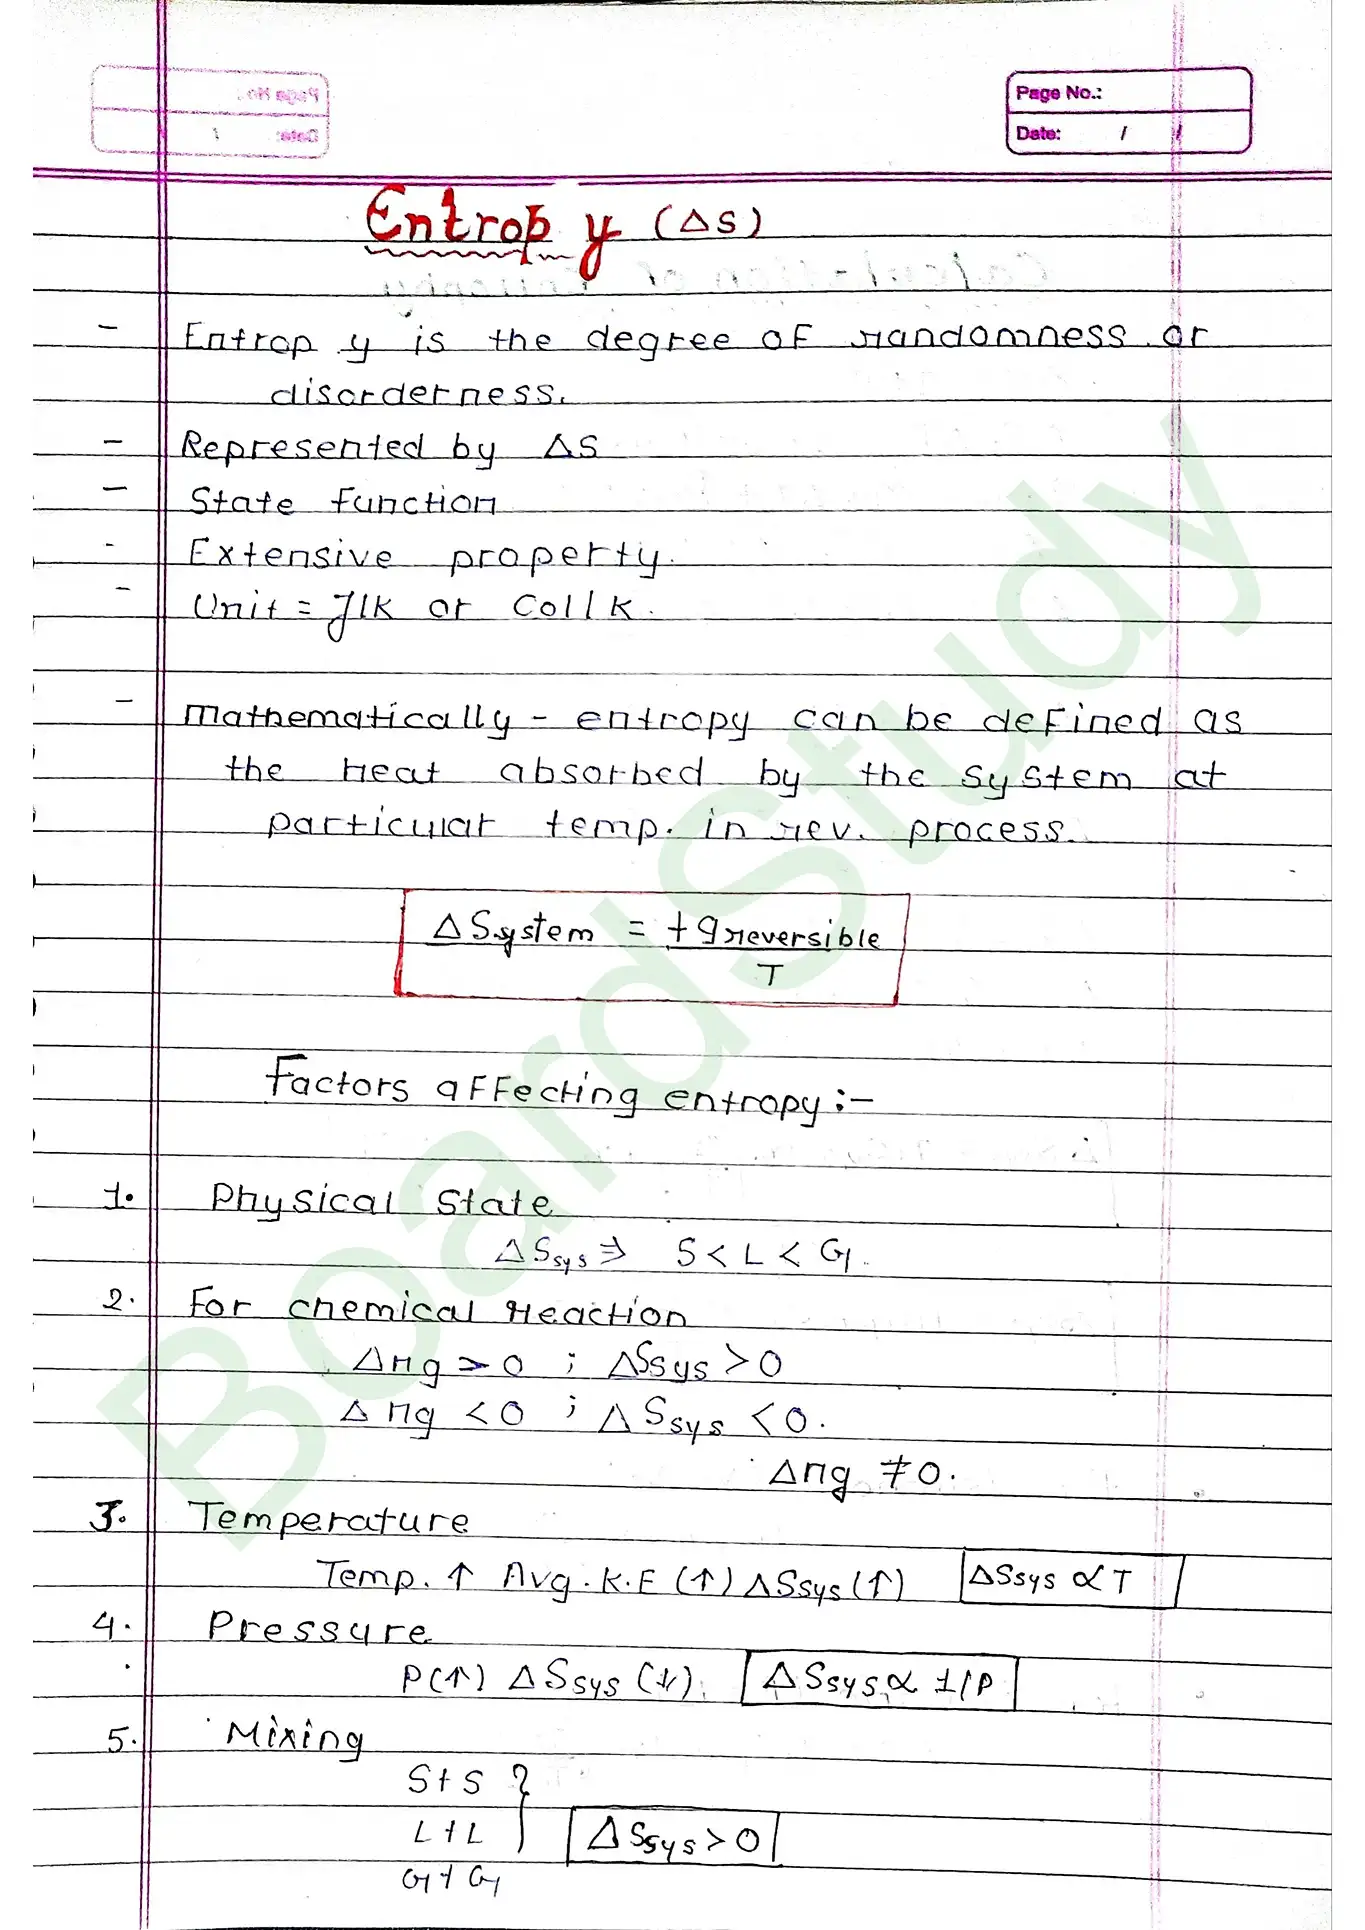 Page No.:
Date: / /
Entropy (ΔS)
- Entropy is the degree of randomness or
disorderness.
- Represented by ΔS
- State function
- Extensive property.
- Unit = J/K or Col/K.
- Mathematically - entropy can be defined as
the heat absorbed by the system at
particular temp. in rev. process.
ΔSystem = +qreversible
T
Factors affecting entropy :-
1. Physical State
ΔSsys ⇒ S < L < G
2. For chemical reaction
Δng > 0 ; ΔSsys > 0
Δng < 0 ; ΔSsys < 0.
Δng ≠ 0.
3. Temperature
Temp. ↑ Avg. K.E (↑) ΔSsys (↑) ΔSsys ∝ T
4. Pressure
P(↑) ΔSsys (↓). ΔSsys ∝ 1/P
5. Mixing
S + S
L + L ΔSsys > 0
G + G
BoardStudy